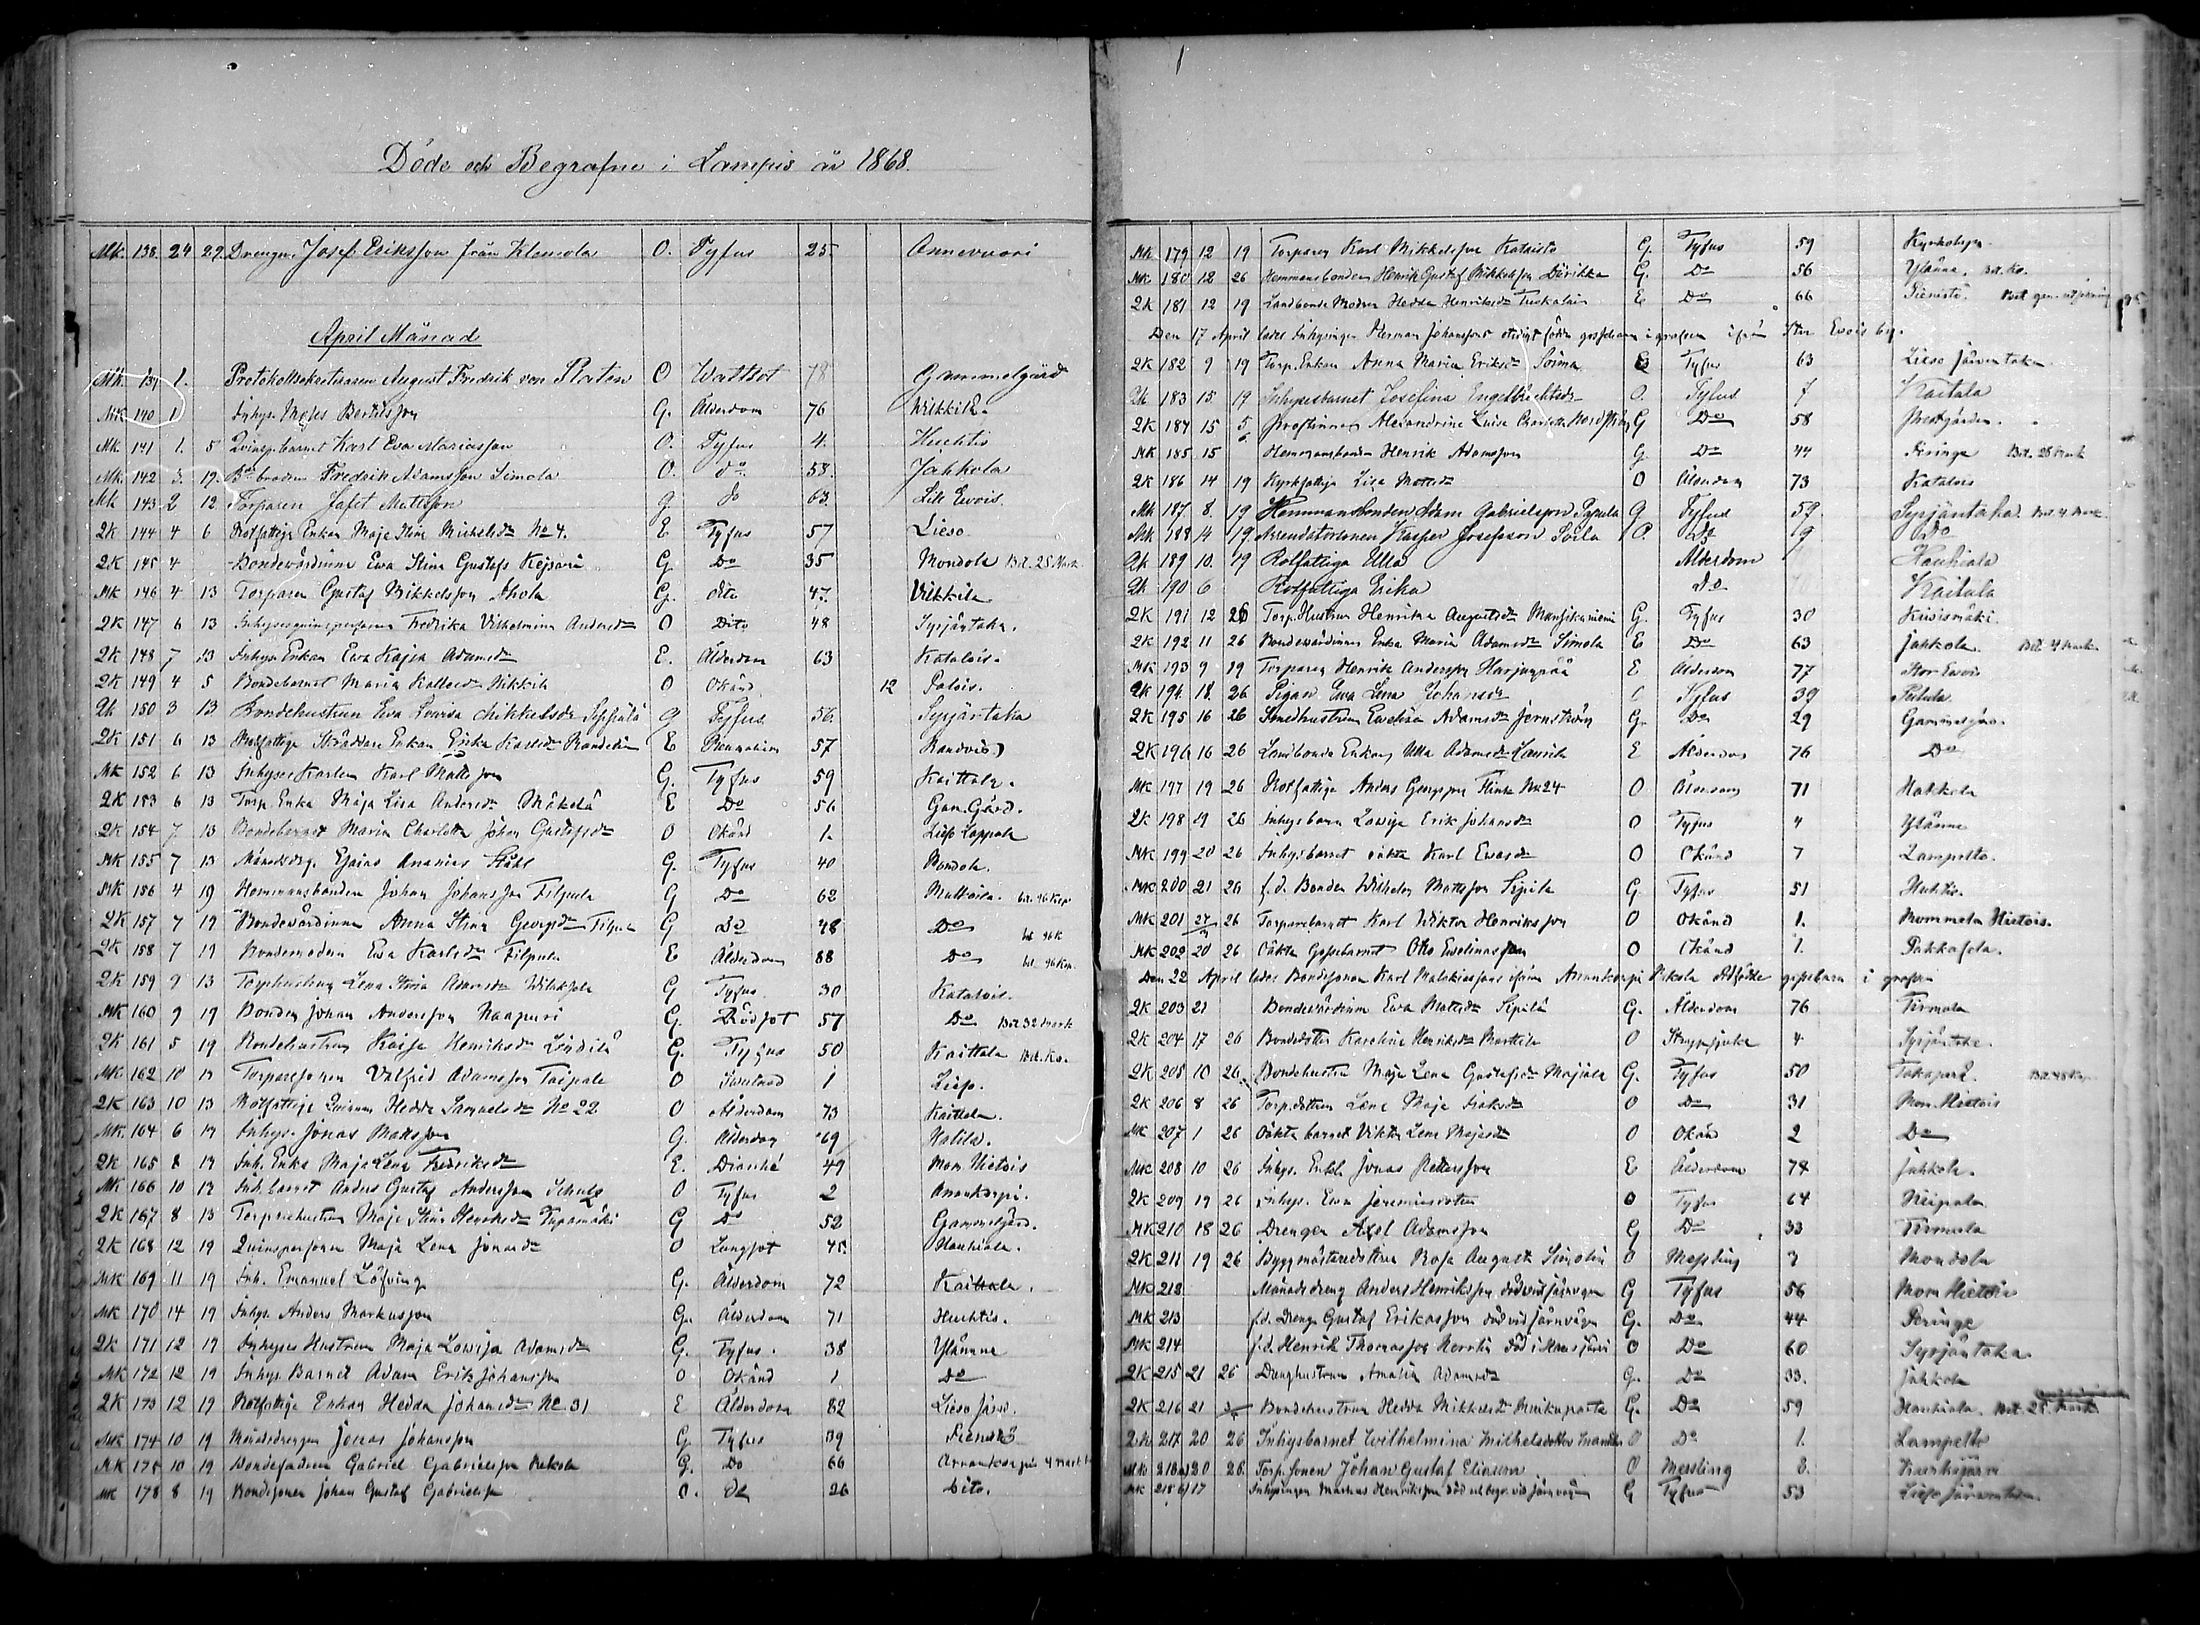 Döde och Begrafne i Lampis år 1868.
Mk. 138. 24 29. Drengen Josef Eriksson från Klemola O. Tyfus 25. Annevuori
April Månad
Mk. 139 1. August Fredrik von Platen O Wattsot 78 Gammelgård
Mk 140 1 Inhys. Moses Bertilsson G. Ålderdom 76 Wilkkilä.
Mk 141 1. 5 Karl Eva Mariasson O. Tyfus 4. Huchtis
Mk. 142 3. 19. Fredrik Adamsson Simola O. do 58. Jahkola
Mk 143 2 12 Torparen Jafet Mattsson g do 63. Lill Evois.
Qk 144 4 6 Rotfattige Enkan Maja Stina Michelsdr No 4. E Tyfus 57 Lieso
Qk 145 4 Bondevärdinna Ewa Stina Gustafs G Do 35 Mondola Bet. 25 Mark
Mk 146 4 13 Torparen Gustaf Mikkelsson Ahola G. dito 47. Vilkkilä
Qk 147 6 13 Fredrika Vilhelmina Andersdr O Dito 48 Syrjäntaka.
Qk 148 7 13 Inhys Enkan Ewa Kajsa Adamsdr E. Ålderdom 63 Katalois.
Qk 149 4 5 Bondebarnet Maria O Okänd 12 Palois.
Qk 150 3 13 Bondehustrun Eva Lovisa Mikkelsdr g Tyfus 56. Syrjäntaka
Qk 151 6 13 Rotfattige Skräddare Enkan Erika E 57
Mk 152 6 13 Inhyses Karlen Karl Mattsson G. Tyfus 59 Kaittala.
Qk 153 6 13 Torp. Enka Maja Lisa Andersdr Mäkelä E Do 56 Gam. Gård.
Qk 154 7 13 Bondebarnet Maria Charlotta Johan Gustafsdr O Okänd 1. Lieso Lappala
Mk 155 7 13 Esaias Ananias Ståhl G. Tyfus 40 Mondola.
Mk 156 4 19 Hemmansbonden Johan Johansson Filpula G Do 62 bet. 96 kop
Qk 157 7 19 Bondevärdinna Anna Stina Georgsdr Filpula G Do 48 Do bet 96 k
Qk 158 7 19 Bondemodren Ewa Karlsdr Filpula E Ålderdom 88 Do bet 96 kop.
Qk 159 9 13 Torphustrun Lena Stina Adamsdr G Tyfus 30 Katalois.
Mk 160 9 19 Bonden Johan Andersson Naapuri G. Rödsot 57 Do Bet 32 mark
Qk 161 5 19 Bondehustrun Kaisa Henriksdr G. Tyfus 50 Kaittala Bet. Ko.
Mk 162 10 19 Torparesonen Valfrid Adamsson Taipale O 1 Lieso.
Qk 163 10 13 Rotfattige Hedda Samuelsdr No 22 O Ålderdom 73 Kaittala.
Mk. 164 6 19 Inhys. Jonas Mattsson G. Ålderdom 69 Halila.
Qk 165 8 19 Inh. Enka Maja Lena Fredriksdr E. 49 Mom Hietois
Mk 166 10 19 Inh. barnet Anders Gustaf Andersson O Tyfus 2 Anankorpi.
Qk 167 8 13 Torparehustrun Maja Stina Henriksdr G Do 52 Gammelgård.
Qk 168 12 19 Quinspersonen Maja Lena Jonasdr O Lungsot 45. Hauhiala.
Mk 169 11 19 Inh. Emanuel Löfving G. Ålderdom 72 Kaittala.
Mk 170 14 19 Inhys. Anders Markusson G. Ålderdom 71 Huchtis.
Qk 171 12 19 Inhyses Hustrun Maja Lovisa Adamsdr G. Tyfus. 38 Ylänne
Mk 172 12 19 Inhys. Barnet Adam Erik Johansson O Okänd 1. Do
Qk 173 12 19 Rotfattige Enkan Hedda Johansdr No 31 E Ålderdom 82 Lieso
Mk 174 10 19 Månadsdrengen Jonas Johansson G Tyfus 39
Mk 175 10 19 Bondefadren Gabriel Gabrielsson G. Do 66 4 mark
Mk 178 8 19 Bondesonen Johan Gustaf Gabrielsson O. do 26 Dito.
Mk 179 12 19 Torparen Karl Mikkelsson Kataisto G. Tyfus 59 Kyrkobyn.
Mk 180 12 26 Hemmansbonden Henrik Gustaf Mikkelsson G. Do 56 Ylänne. Bet. Ko.
Qk 181 12 19 Landbonde Modren Hedda Henriksdr E Do 66
Den 17 April lades Inhysingen Herman Johanssons gossebarn i grafven ifrån Stor Evois by.
Qk 182 9 19 Torp. Enkan Anna Maria Eriksdr E Tyfus 63 Lieso Järventaka
Qk 183 15 19 Inhysesbarnet Josefina Engelbrechtsdr O. Tyfus 7 Kaitala
Qk 184 15 5/6 Prostinnan Alexandrine Luise Charlotta G Do 58 Prestgården.
Mk 185 15 Hemmansbonden Henrik Adamsson G Do 44 Bet. 28 Mark
Qk 186 14 19 Kyrkfattige Lisa Mattsdr O Ålderdom 73 Katalois
Mk 187 8. 19 Hemmansbonden Adam Gabrielsson G Tyfus 59 Syrjäntaka.
Mk 188 14 19 Arrendatorsonen Kasper Josefsson Soila O. Do 19 Do
Qk 189 10. 19 Rotfattiga Ulla Ålderdom Hauhiala
Qk 190 6 Rotfattiga Erika Do Kaitala
Qk 191 12 26 Torp. Hustrun Henrika Augustsdr Mansikkaniemi G. Tyfus 30
Qk 192 11 26 Bondevärdinnan Maria Adamsdr Simola E Do 63 Jahkola Bet. 4 Mark
Mk 193 9 19 Torparen Henrik Andersson Harjunpää E Ålderdom 77 Stor Evois
Qk 194 18. 26 Pigan Ewa Lena Johansdr Tyfus 39
Qk 195 16 26 Smedhustrun Evelina Adamsdr Jernström G. Do 29 Gammelgård.
Qk 196 16 26 Landbonde Enkan Ulla Adamsdr E Ålderdom 76 Do
Mk 197 19 26 Rotfattige Anders No 24 O Ålderdom 71
Qk 198 19 26 Inhysbarn Lovisa Erik Johansdr O Tyfus 4 Ylänne
Mk 199 20 26 Inhysbarnet oäkta Karl O Okänd 7 Lampelto.
Mk 200 21 26 f.d. Bonden Wilhelm Mattsson G. Tyfus 51 Huhtis.
Mk 201 26 Torparebarnet Karl Wiktor Henriksson O Okänd 1. Mommola Hietois.
Mk 202 20 26 Oäkta Gossebarnet Otto Evelinasson O Okänd 1.
Den 22 April lades Bondesonen Karl Malakiassons ifrån gossebarn i grafven
Qk 203 21 Bondevärdinna Ewa Mattsdr G. Ålderdom 76 Tirmula
Qk 204 17 26 Bondedotter Karolina Henriksdr Marttila O Strypsjuka 4 Syrjäntaka.
Qk 205 10 26 Bondehustru Maja Lena Gustafsdr G. Tyfus 50
Qk 206 8 26 Torp. dottren Lena Maja O Do 31 Mom. Hietois
Mk 207 1 26 Oäkta barnet Viktor Lena Majasdr O Okänd 2 Do
Mk 208 10 26 Inhys. Jonas Pettersson E Ålderdom 74 Jahkola.
Qk 209 19 26 Inhys. Ewa O Tyfus 64
Mk 210 18 26 Drengen Axel Adamsson G Do 33 Tirmula
Qk 211 19 26 Byggmästaredottren Rosa August Simolin O Messling 3 Mondola
Mk 212 Månadsdreng Anders Henriksson död vid järnvägen G Tyfus 56 Mom Hietois
Mk 213 f.d. Dreng Gustaf Eriksson död vid järnvägen G. Do 44
Mk 214 f.d. Henrik Thomasson död i O Do 60 Syrjäntaka
Qk 215 21 26 Drenghustrun Amalia Adamsdr G. Do 33. Jahkola
Qk 216 21 Bondehustrun Hedda Mikkelsdr G. Do 59 Hauhiala. Bet. 25 Mark
Qk 217 20 26 Inhysbarnet Wilhelmina O Do 1. Lampelto
Mk 218 a) 20 26. Torp. sonen Johan Gustaf O Messling 2.
Mk 218 b) 17 Inhysingen Markus Henriksson död och begr. vid järnvägen G Tyfus 53 Lieso